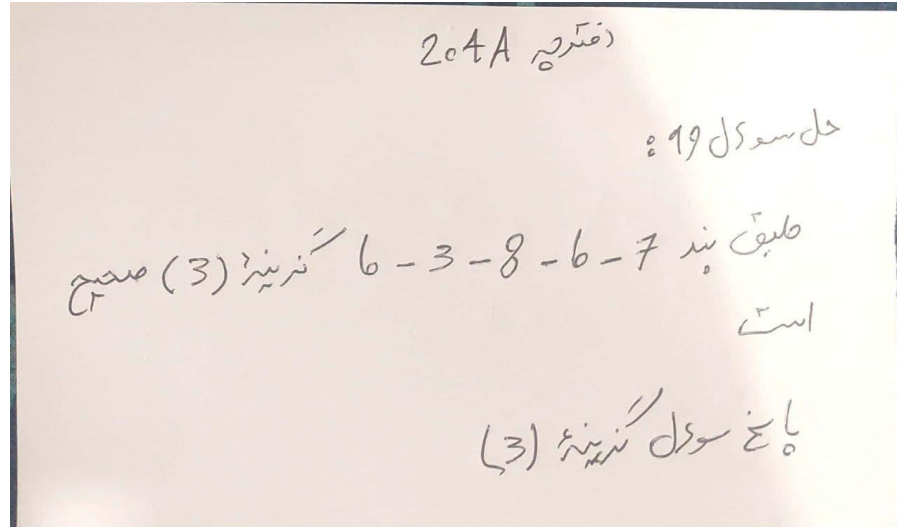 دفترچه 204A
حل سوال 19:
طبق بند 7-6-8-3-6 گزینهٔ (3) صحیح
است
پاسخ سوال گزینهٔ (3)